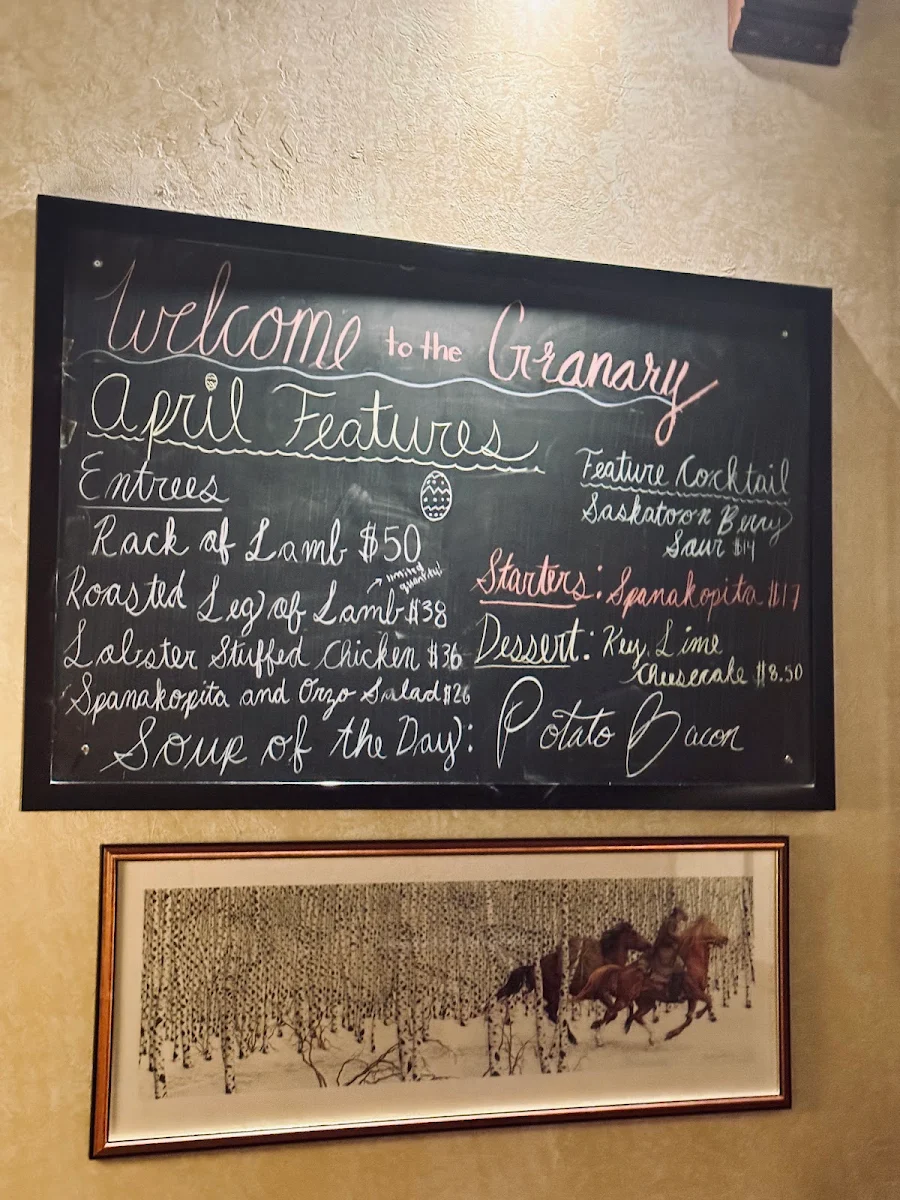 Welcome to the Granary
April Features
Entrees
Rack of Lamb $50
limited
quantity!
Roasted Leg of Lamb $38
Lobster Stuffed Chicken $36
Spanakopita and Orzo Salad $26
Feature Cocktail
Saskatoon Berry
Sour $14
Starters: Spanakopita $17
Dessert: Key Lime
Cheesecake $8.50
Soup of the Day: Potato Bacon